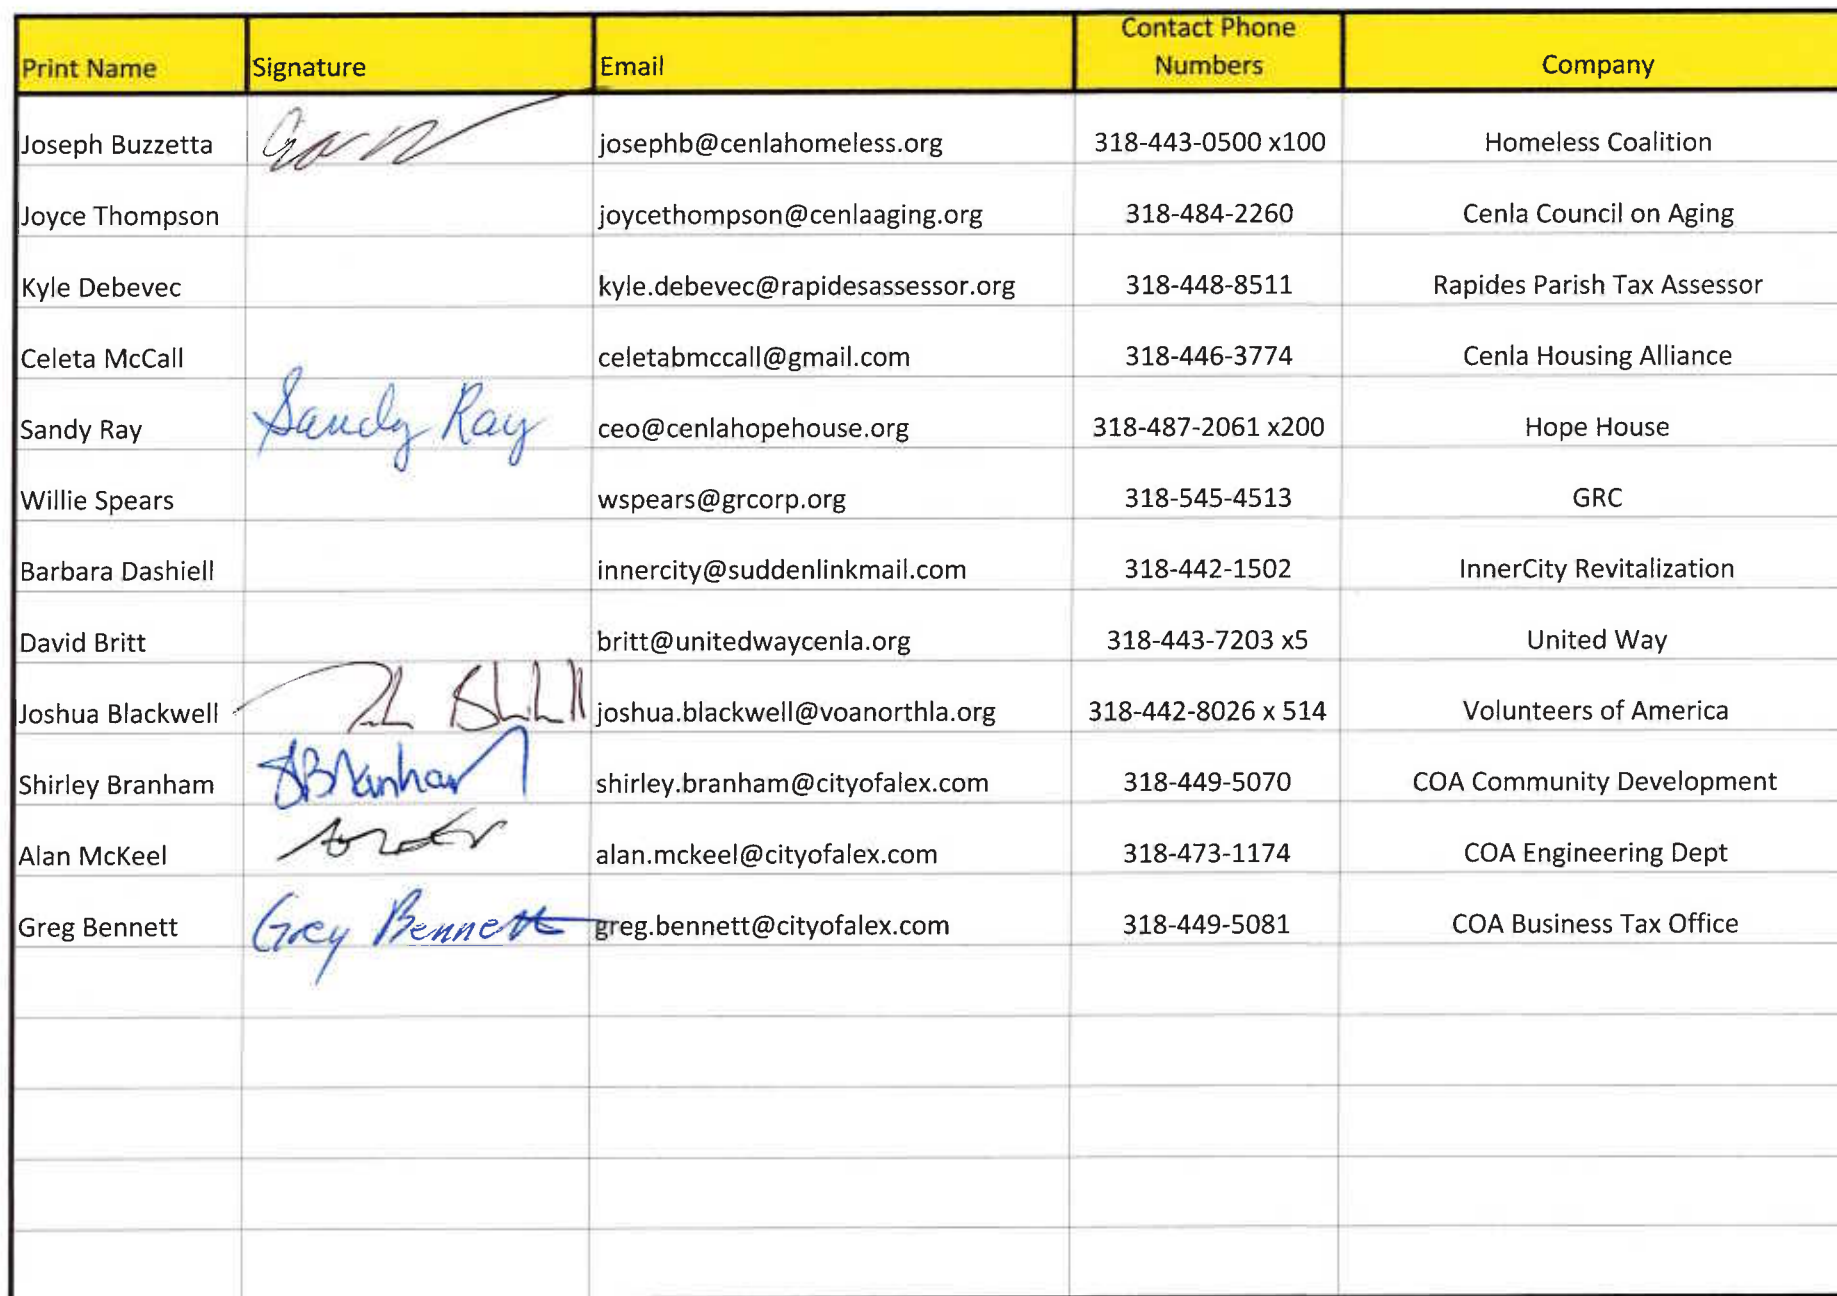 Print Name Signature Email Contact Phone Numbers Company
Joseph Buzzetta josephb@cenlahomeless.org 318-443-0500 x100 Homeless Coalition
Joyce Thompson joycethompson@cenlaaging.org 318-484-2260 Cenla Council on Aging
Kyle Debevec kyle.debevec@rapidesassessor.org 318-448-8511 Rapides Parish Tax Assessor
Celeta McCall celetabmccall@gmail.com 318-446-3774 Cenla Housing Alliance
Sandy Ray Sandy Ray ceo@cenlahopehouse.org 318-487-2061 x200 Hope House
Willie Spears wspears@grcorp.org 318-545-4513 GRC
Barbara Dashiell innercity@suddenlinkmail.com 318-442-1502 InnerCity Revitalization
David Britt britt@unitedwaycenla.org 318-443-7203 x5 United Way
Joshua Blackwell joshua.blackwell@voanorthla.org 318-442-8026 x 514 Volunteers of America
Shirley Branham SBranham shirley.branham@cityofalex.com 318-449-5070 COA Community Development
Alan McKeel alan.mckeel@cityofalex.com 318-473-1174 COA Engineering Dept
Greg Bennett Greg Bennett greg.bennett@cityofalex.com 318-449-5081 COA Business Tax Office